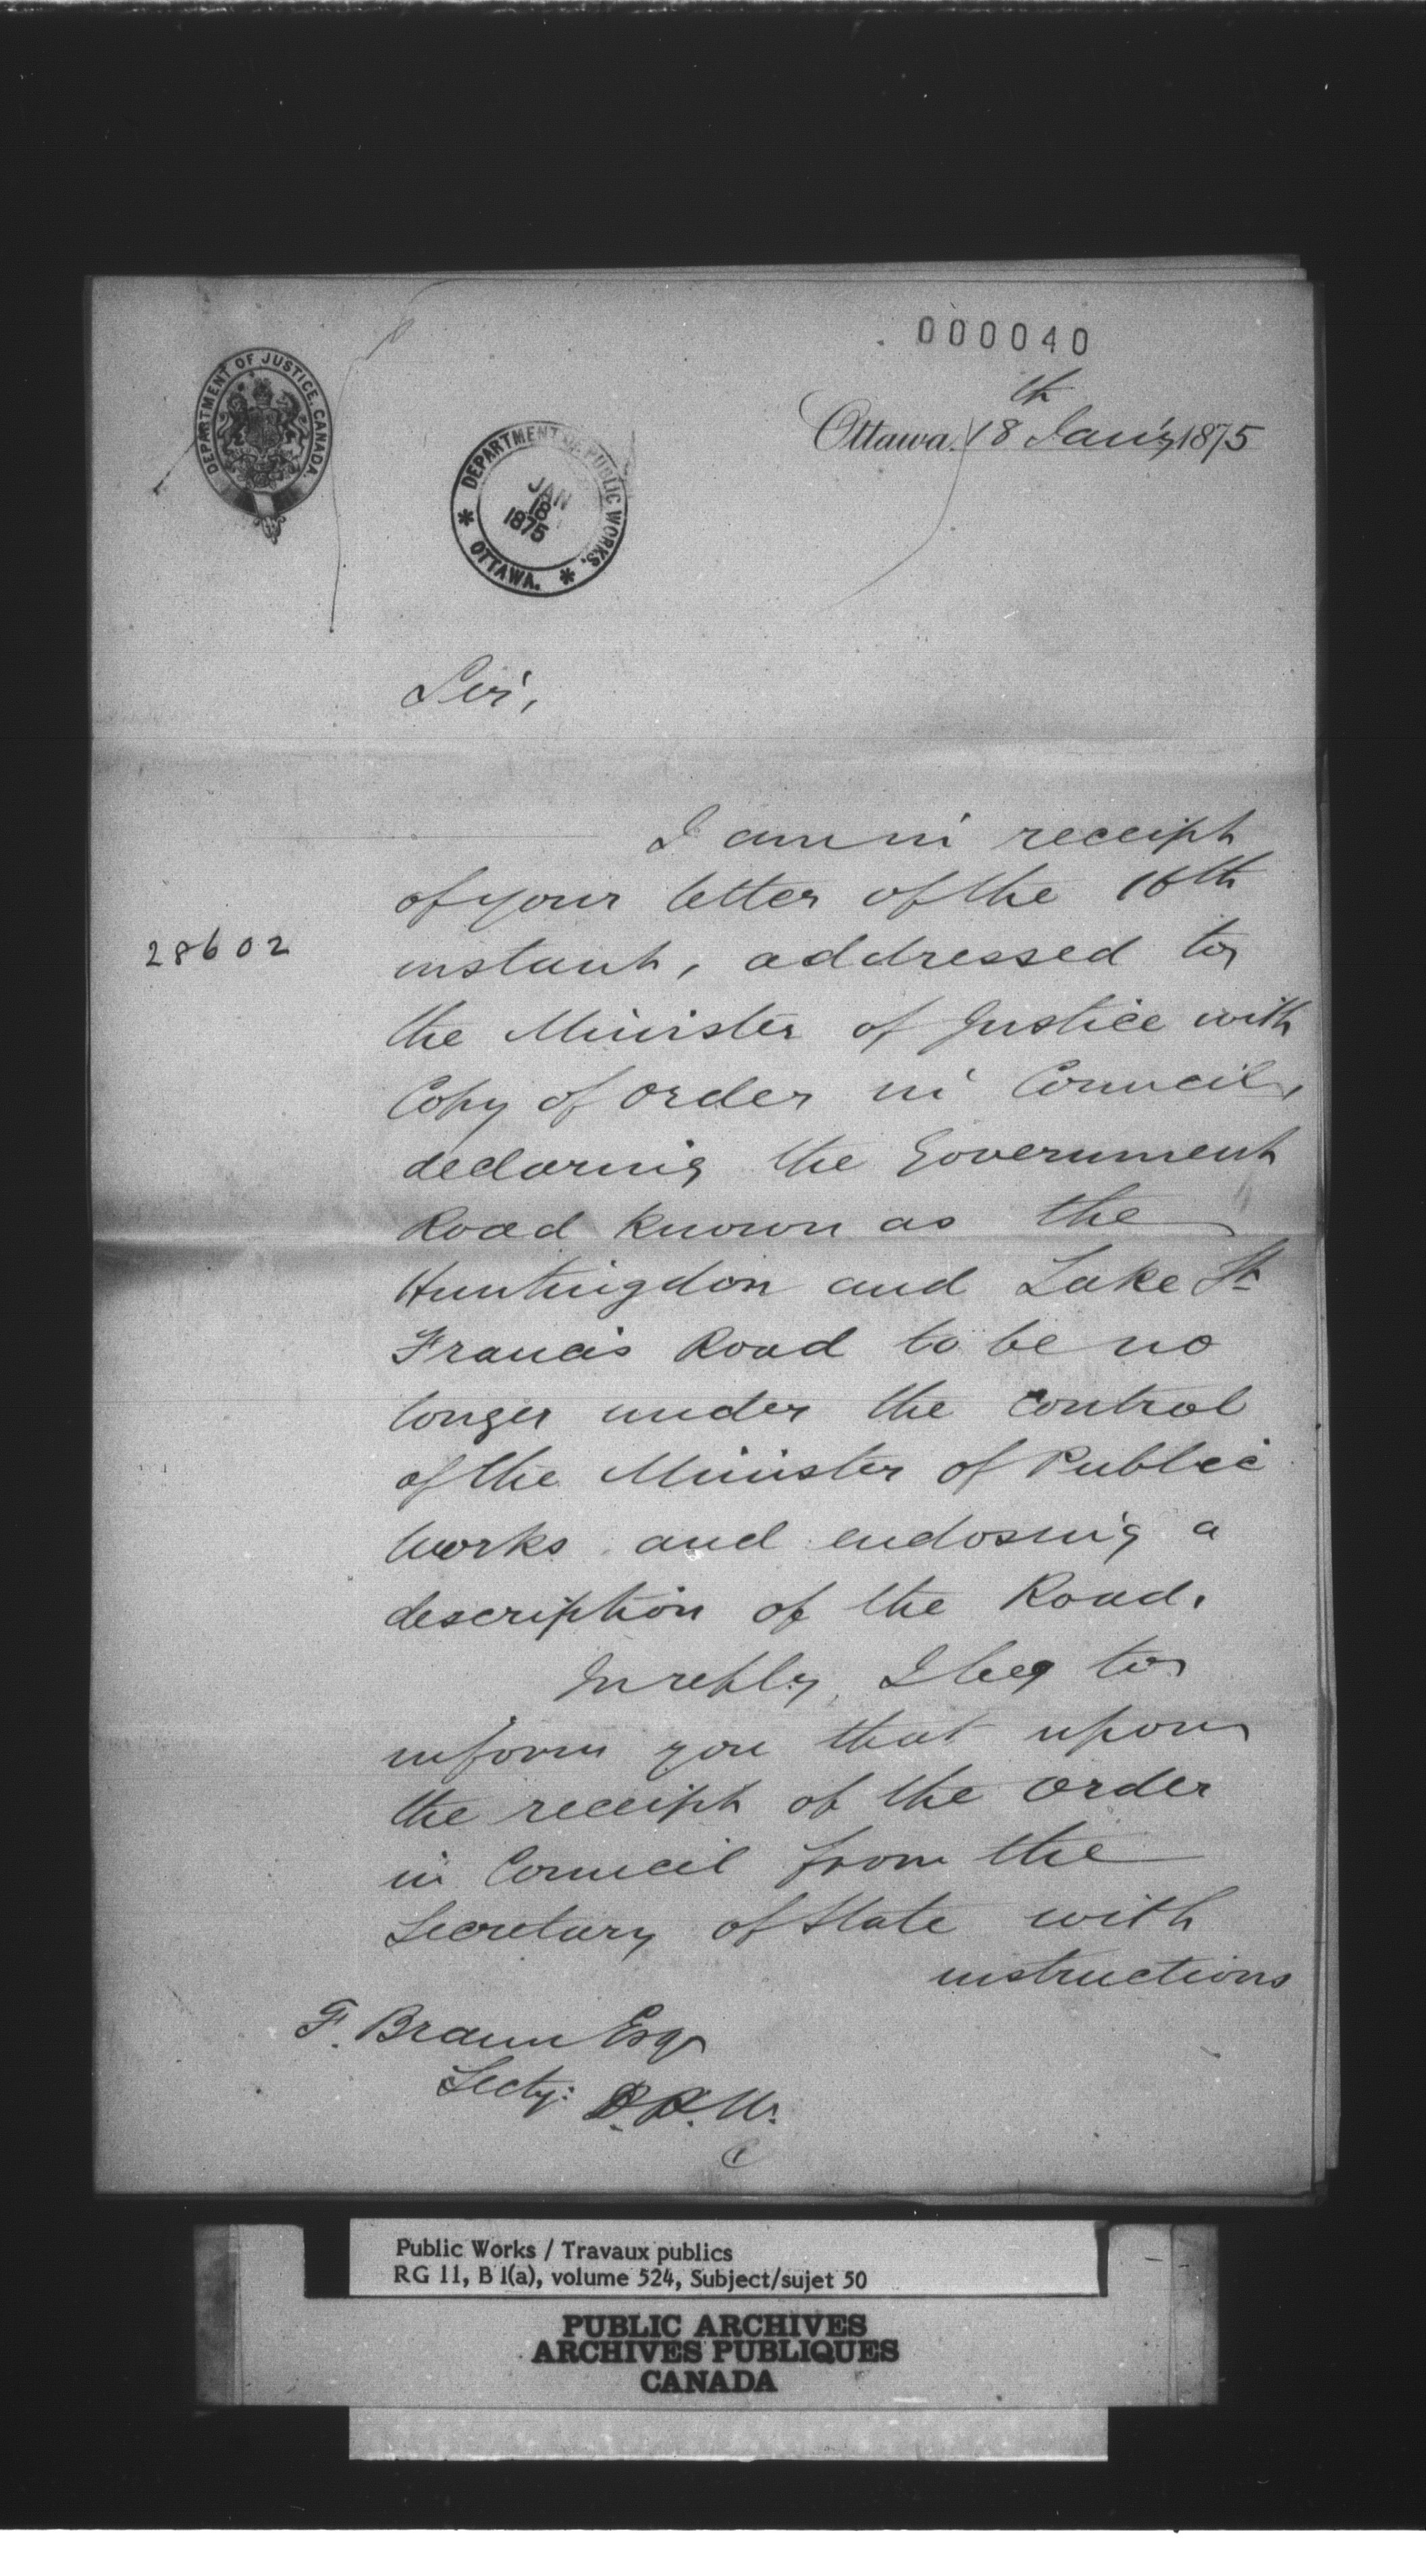 000040
DEPARTMENT OF JUSTICE. CANADA.
Ottawa. 18th Jan'y 1875
DEPARTMENT OF PUBLIC WORKS.
JAN
18
1875
* OTTAWA. *
Sir,
I am in receipt
of your letter of the 16th
28602
instant, addressed to
the Minister of Justice with
Copy of order in Council,
declaring the Government
Road known as the
Huntingdon and Lake St
Francis Road to be no
longer under the control
of the Minister of Public
Works and enclosing a
description of the Road.
In reply, I beg to
inform you that upon
the receipt of the order
in Council from the
Secretary of State with
instructions
F. Braun Esqr
Secty: D.P.W.
Public Works / Travaux publics
RG 11, B 1(a), volume 524, Subject/sujet 50
PUBLIC ARCHIVES
ARCHIVES PUBLIQUES
CANADA